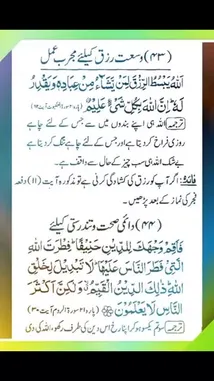 (۴۳) وسعت رزق کیلئے مجرب عمل
اَللّٰهُ يَبْسُطُ الرِّزْقَ لِمَنْ يَّشَآءُ مِنْ عِبَادِهٖ وَيَقْدِرُ
لَهٗ اِنَّ اللّٰهَ بِكُلِّ شَيْءٍ عَلِيْمٌ
ترجمہ: اللہ ہی اپنے بندوں میں سے جس کے لئے چاہے
روزی فراخ کر دیتا ہے اور جس کے لئے چاہے تنگ کر دیتا ہے
بے شک اللہ ہی سب چیز کے حال سے واقف ہے۔
فائدہ: اگر آپ کو رزق کی کشادگی کرنی ہے تو مذکورہ آیت (۱۱) دفعہ
فجر کی نماز کے بعد پڑھیں۔
(۴۴) دائمی صحت و تندرستی کیلئے
فَاَقِمْ وَجْهَكَ لِلدِّيْنِ حَنِيْفًا فِطْرَتَ اللّٰهِ
الَّتِيْ فَطَرَ النَّاسَ عَلَيْهَا لَا تَبْدِيْلَ لِخَلْقِ
اللّٰهِ ذٰلِكَ الدِّيْنُ الْقَيِّمُ وَلٰكِنَّ اَكْثَرَ
النَّاسِ لَا يَعْلَمُوْنَ (پارہ ۲۱ سورۃ الروم آیت ۳۰)
ترجمہ: سو تم یکسو ہو کر اپنا رخ اس دین کی طرف رکھو، اللہ کی دی